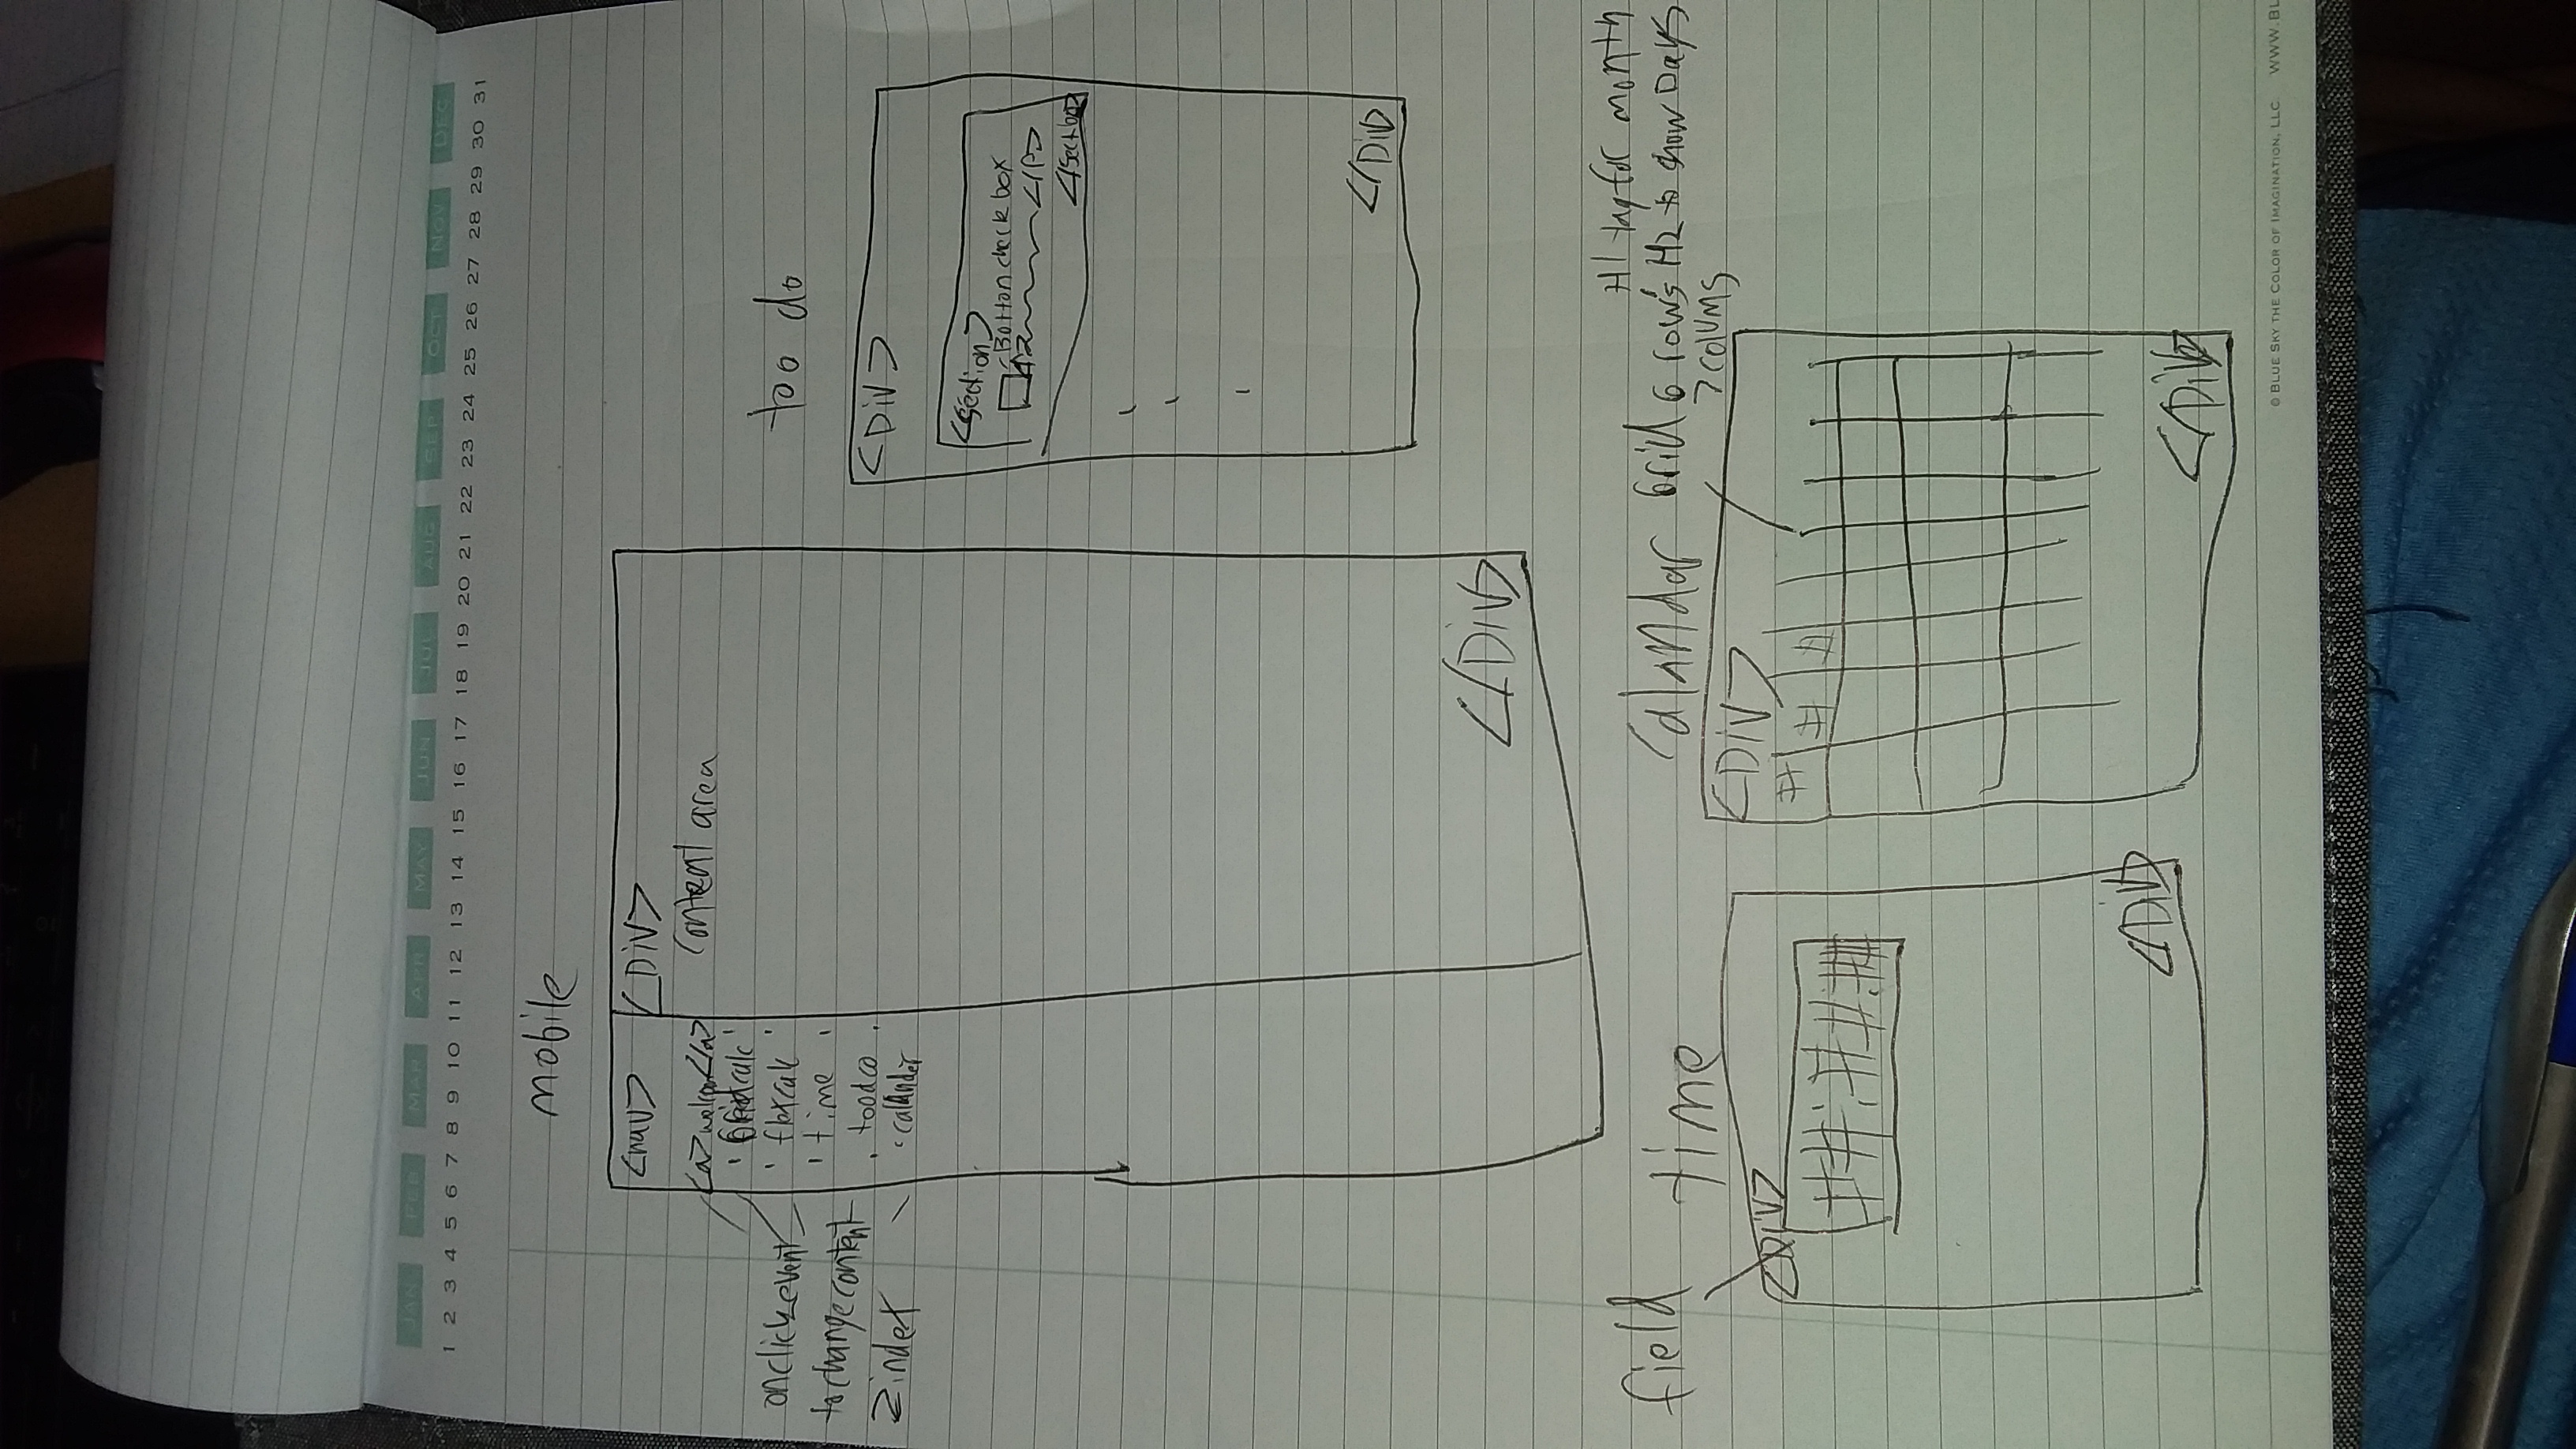 JAN FEB MAR APR MAY JUN JUL AUG SEP OCT NOV DEC
1 2 3 4 5 6 7 8 9 10 11 12 13 14 15 16 17 18 19 20 21 22 23 24 25 26 27 28 29 30 31
mobile
<nav>
<a> </a>
' calc '
' flexcalc '
' time '
. toodoo .
onclick event
to change content
Zindex
<Div>
Content area
</Div>
too do
<Div>
<section>
Botton check box
</P>
</section>
</Div>
field
time
<Div>
##:##:##
</Div>
Calandar Grid 6 row's
7 colums
H1 tag for month
H2 to show Days
<Div>
# # #
</Div>
© BLUE SKY THE COLOR OF IMAGINATION, LLC WWW.BL